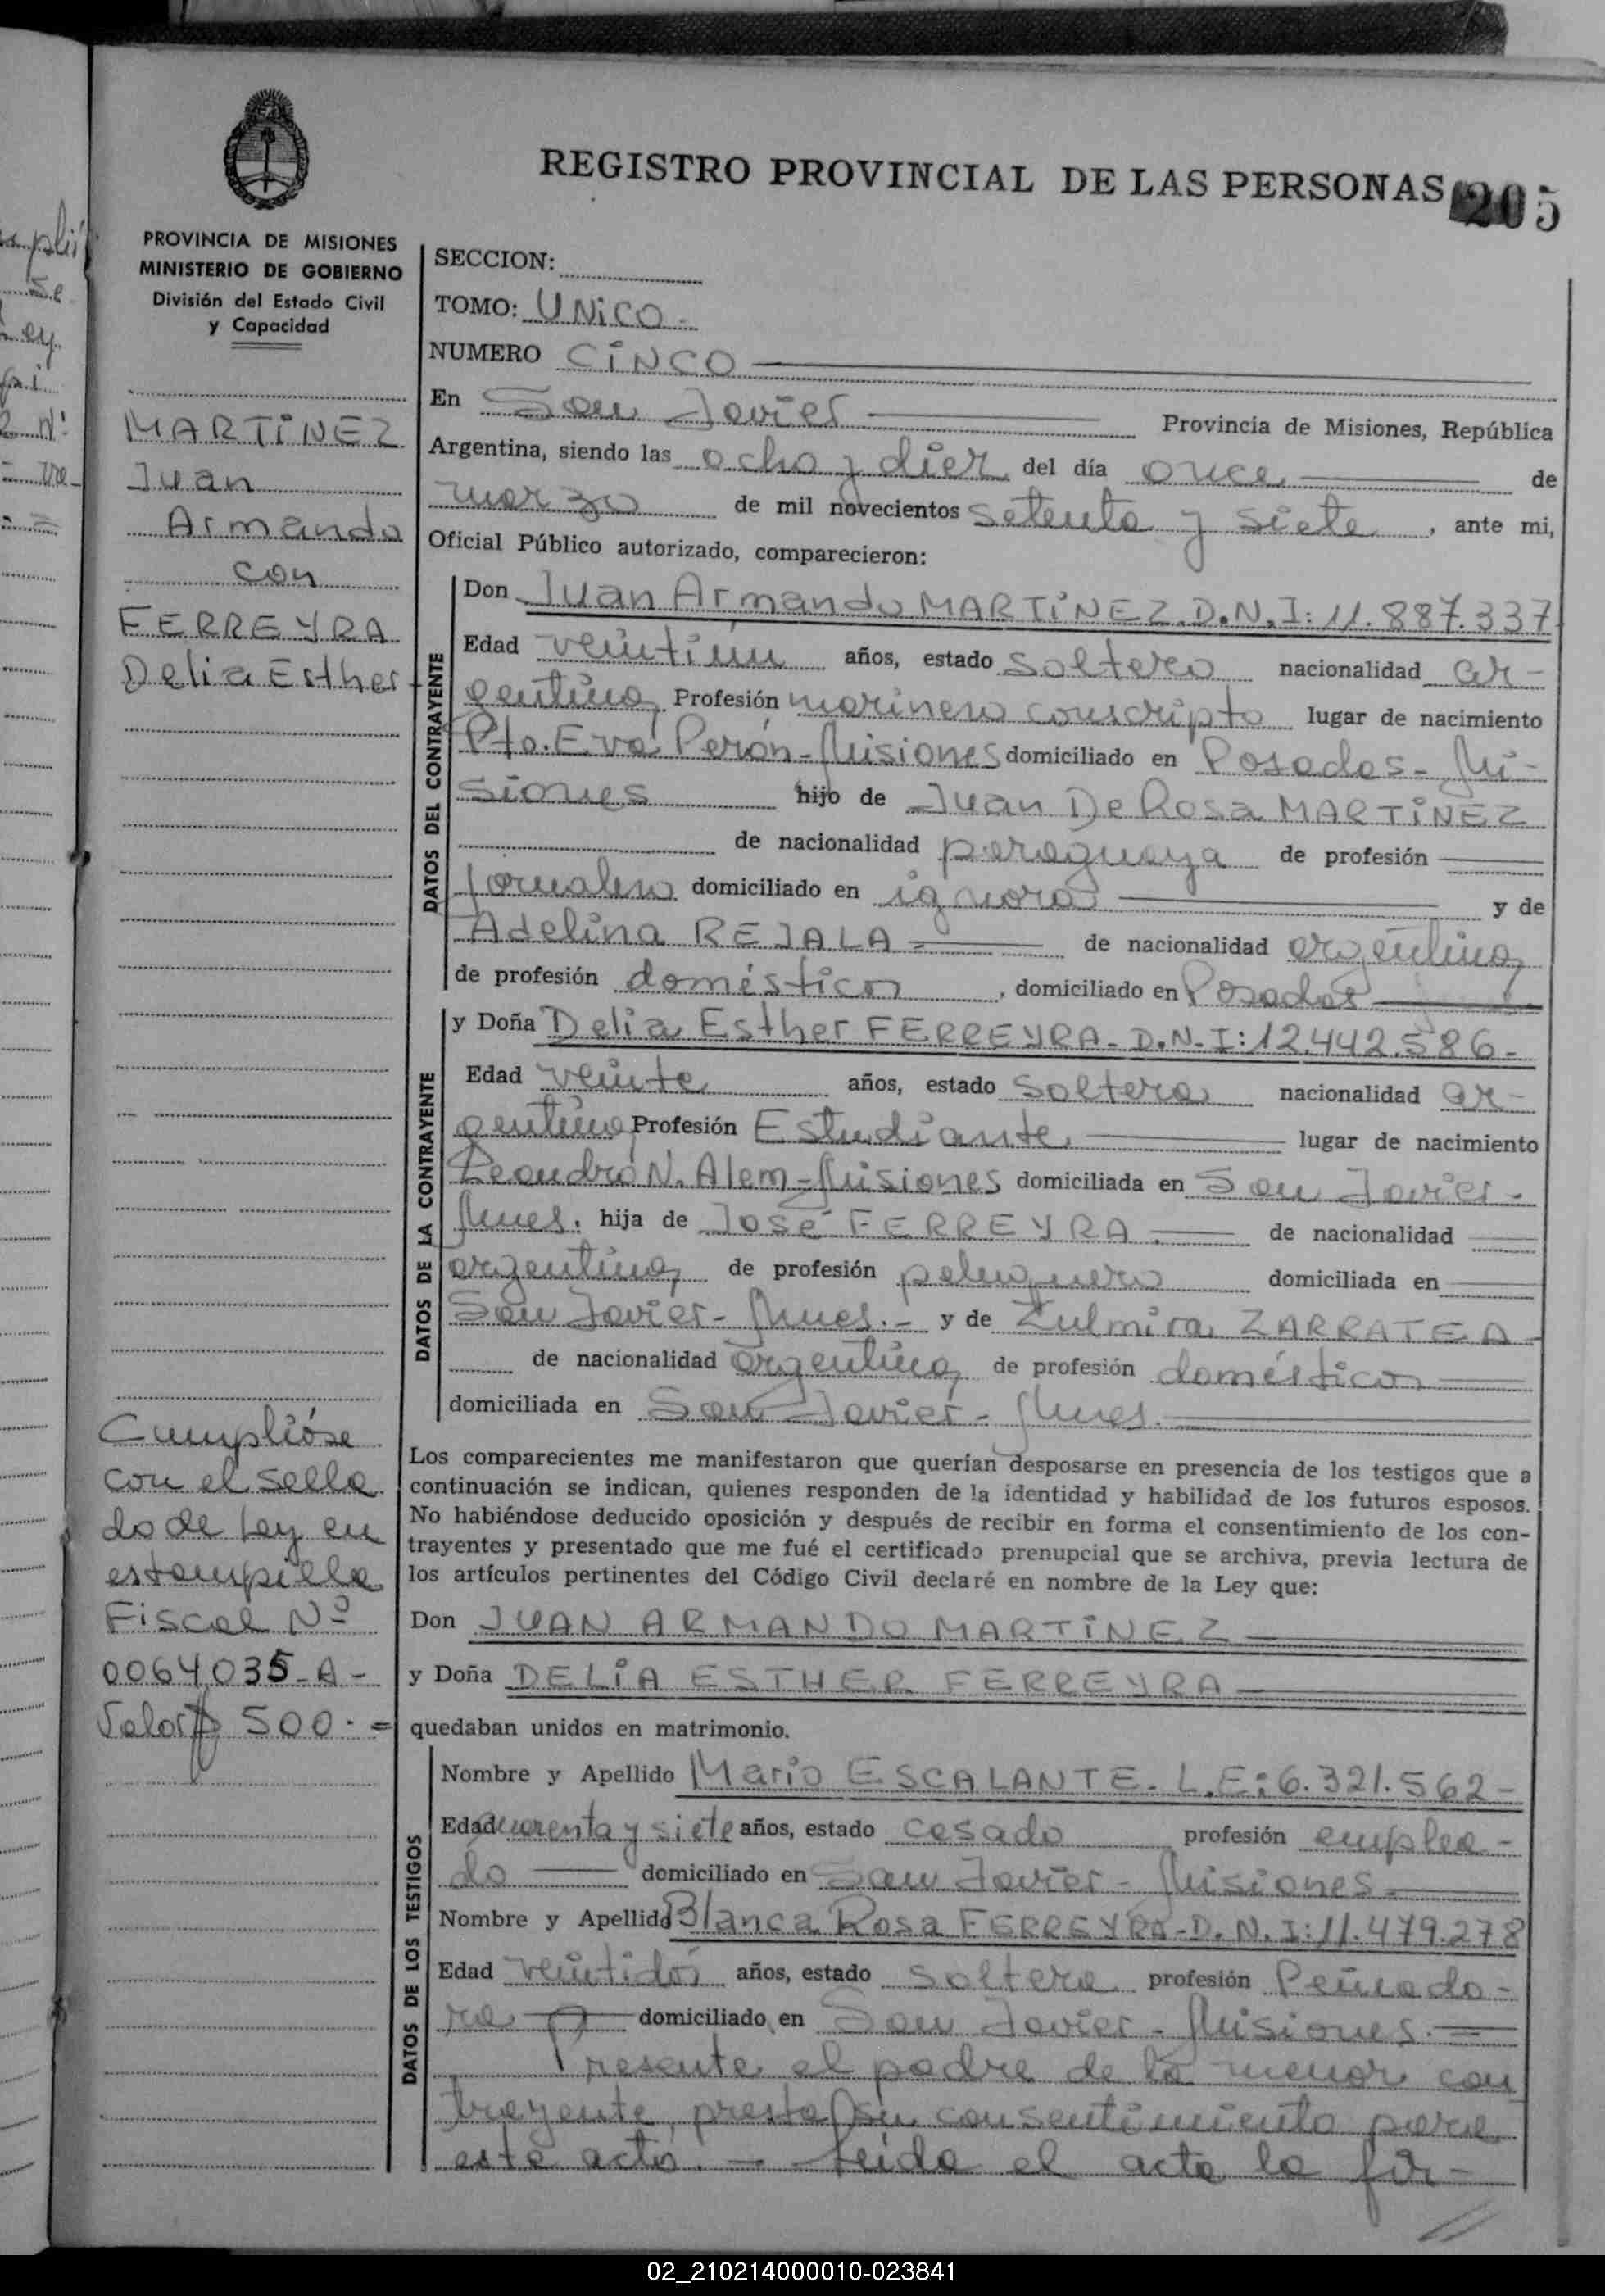 REGISTRO PROVINCIAL DE LAS PERSONAS 205
PROVINCIA DE MISIONES
MINISTERIO DE GOBIERNO
División del Estado Civil
y Capacidad
MARTiNEZ
Juan
Armando
con
FERREYRA
Delia Esther
Cumplióse
con el sella
do de Ley en
estampilla
Fiscal Nº
0064035-A-
Valor $ 500.=
SECCION:
TOMO: UNiCO-
NUMERO CiNCO
En San Javier Provincia de Misiones, República
Argentina, siendo las ocho y diez del día once de
marzo de mil novecientos setenta y siete, ante mi,
Oficial Público autorizado, comparecieron:
DATOS DEL CONTRAYENTE
Don Juan Armando MARTiNEZ.D.N.I:11.887.337
Edad veintiún años, estado soltero nacionalidad ar-
gentina Profesión marinero conscripto lugar de nacimiento
Pto. Eva Perón-Misiones domiciliado en Posadas-Mi-
siones hijo de Juan De Rosa MARTiNEZ
de nacionalidad paraguaya de profesión
jornalero domiciliado en ignora y de
Adelina REJALA- de nacionalidad argentina
de profesión doméstica, domiciliado en Posadas
DATOS DE LA CONTRAYENTE
y Doña Delia Esther FERREYRA-D.N.I:12.442.586-
Edad veinte años, estado soltera nacionalidad ar-
gentina Profesión Estudiante lugar de nacimiento
Leandro N. Alem-Misiones domiciliada en San Javier-
Mnes. hija de José FERREYRA.- de nacionalidad
argentina de profesión peluquero domiciliada en
San Javier-Mnes.- y de Zulmira ZARRATEA-
de nacionalidad argentina de profesión doméstica
domiciliada en San Javier-Mnes.
Los comparecientes me manifestaron que querían desposarse en presencia de los testigos que a
continuación se indican, quienes responden de la identidad y habilidad de los futuros esposos.
No habiéndose deducido oposición y después de recibir en forma el consentimiento de los con-
trayentes y presentado que me fué el certificado prenupcial que se archiva, previa lectura de
los artículos pertinentes del Código Civil declaré en nombre de la Ley que:
Don JUAN ARMANDO MARTiNEZ
y Doña DELiA ESTHER FERREYRA
quedaban unidos en matrimonio.
DATOS DE LOS TESTIGOS
Nombre y Apellido Mario ESCALANTE. L.E:6.321.562-
Edad cuarenta y siete años, estado casado profesión emplea-
do domiciliado en San Javier-Misiones.
Nombre y Apellido Blanca Rosa FERREYRA-D.N.I:11.479.278
Edad veintidós años, estado soltera profesión Peinado-
ra domiciliado en San Javier-Misiones.=
Presente el padre de la menor con
trayente, presta su consentimiento para
este acto.- Leida el acta la fir-
02_210214000010-023841